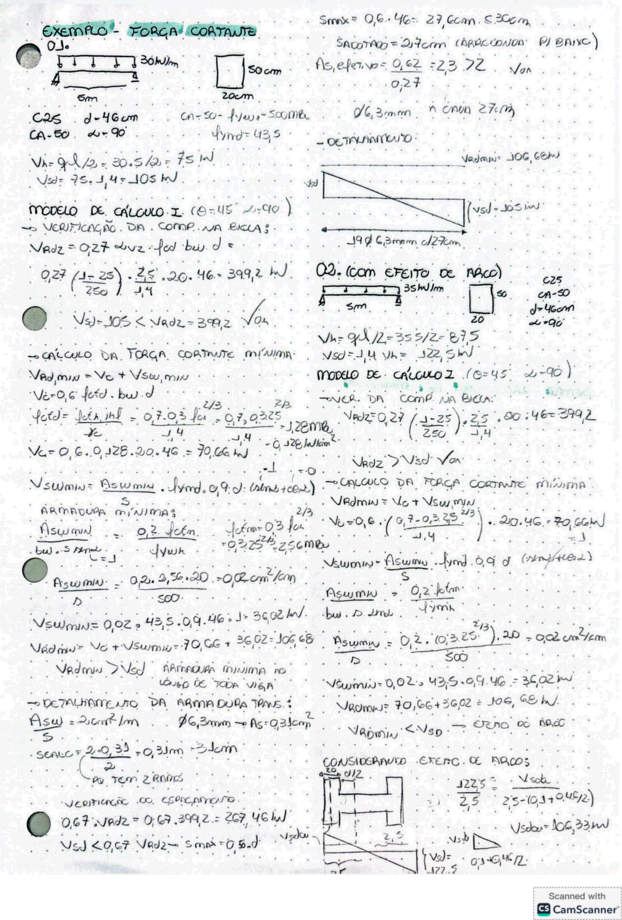 EXEMPLO - FORÇA CORTANTE
01.
30kN/m
5m
50cm
20cm
C25 d=46cm CA-50 - fywk-500MPa
CA-50 α=90° fymd=43,5
Vk=ql/2= 30.5/2= 75 kN
Vsd= 75.1,4=105 kN
MODELO DE CÁLCULO I (θ=45 α=90)
→ VERIFICAÇÃO DA COMP. NA BIELA:
VRd2= 0,27 αv2 . fcd . bw. d =
0,27 (1-25/250) . 2,5/1,4 . 20 . 46= 399,2 kN
Vsd=105 < VRd2= 399,2 √ok
→CÁLCULO DA FORÇA CORTANTE MÍNIMA:
VRd,min = Vc + Vsw,min
Vc=0,6 fctd . bw. d
fctd= fctk,inf/γc = 0,7.0,3 fck^2/3/1,4 = 0,7.0,3.25^2/3/1,4 =1,28MPa
= 0,128kN/cm²
Vc= 0,6 . 0,128 . 20 . 46 = 70,66 kN
=1 =0
Vswmin= Aswmin/s . fymd. 0,9. d (senα+cosα)
ARMADURA MÍNIMA:
Aswmin/bw. s senα = 0,2 fctm/fywk
=1
fctm=0,3 fck^2/3
=0,3.25^2/3=2,56MPa
Aswmin/s = 0,2. 2,56 .20/500 =0,02cm²/cm
Vswmin= 0,02 . 43,5. 0,9. 46 . 1= 36,02 kN
VRdmin= Vc + Vswmin= 70,66 + 36,02= 106,68
VRdmin > Vsd ARMADURA MÍNIMA AO
LONGO DE TODA VIGA
→DETALHAMENTO DA ARMADURA TRANS:
Asw/s =2cm²/m Ø6,3mm → As=0,31cm²
scalc= 2.0,31/2 =0,31m =31cm
POR TEM 2 RAMOS
VERIFICAÇÃO DO ESPAÇAMENTO
0,67. VRd2= 0,67.399,2= 267,46kN
Vsd < 0,67 VRd2→ smáx=0,6.d
smáx= 0,6 . 46= 27,6cm ≤30cm
SADOTADO= 27cm (ARREDONDA P/ BAIXO)
As,efetivo= 0,62/0,27 =2,3 >2 √ok
Ø6,3mm A CADA 27cm
- DETALHAMENTO:
VRdmin= 106,68kN
Vsd
Vsd=105kN
19Ø6,3mm c/27cm
02. (COM EFEITO DE ARCO)
35kN/m
5m
50
20
C25
CA-50
d=46cm
α=90°
Vk= ql/2=35.5/2= 87,5
Vsd=1,4 Vk= 122,5kN
MODELO DE CÁLCULO I (θ=45 α=90)
→VER. DA COMP NA BIELA:
VRd2=0,27 (1-25/250) . 2,5/1,4 . 20 . 46=399,2
VRd2 > Vsd √ok
→CALCULO DA FORÇA CORTANTE MÍNIMA:
VRdmin= Vc + Vsw,min
Vc=0,6. (0,7.0,3.25^2/3/1,4) . 20.46= 70,66kN
=1
Vswmin= Aswmin/s . fymd 0,9 d (senα+cosα)
Aswmin/bw. s senα = 0,2 fctm/fywk
Aswmin/s = 0,2 . (0,3.25^2/3).20/500 = 0,02cm²/cm
Vswmin= 0,02. 43,5. 0,9. 46= 36,02 kN
VRdmin= 70,66+36,02= 106,68 kN
VRDMIN < VSD → EFEITO DO ARCO
CONSIDERANDO EFEITO DE ARCO:
20 d/2
122,5/2,5 = Vsdx/2,5-(0,1+0,46/2)
Vsdx= 106,33kN
2,5
Vsd=
122,5
0,1+0,46/2
Scanned with
CS CamScanner